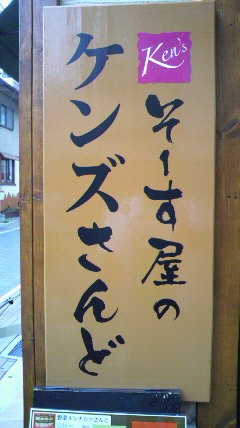 Ken's
そーす屋の
ケンズさんど